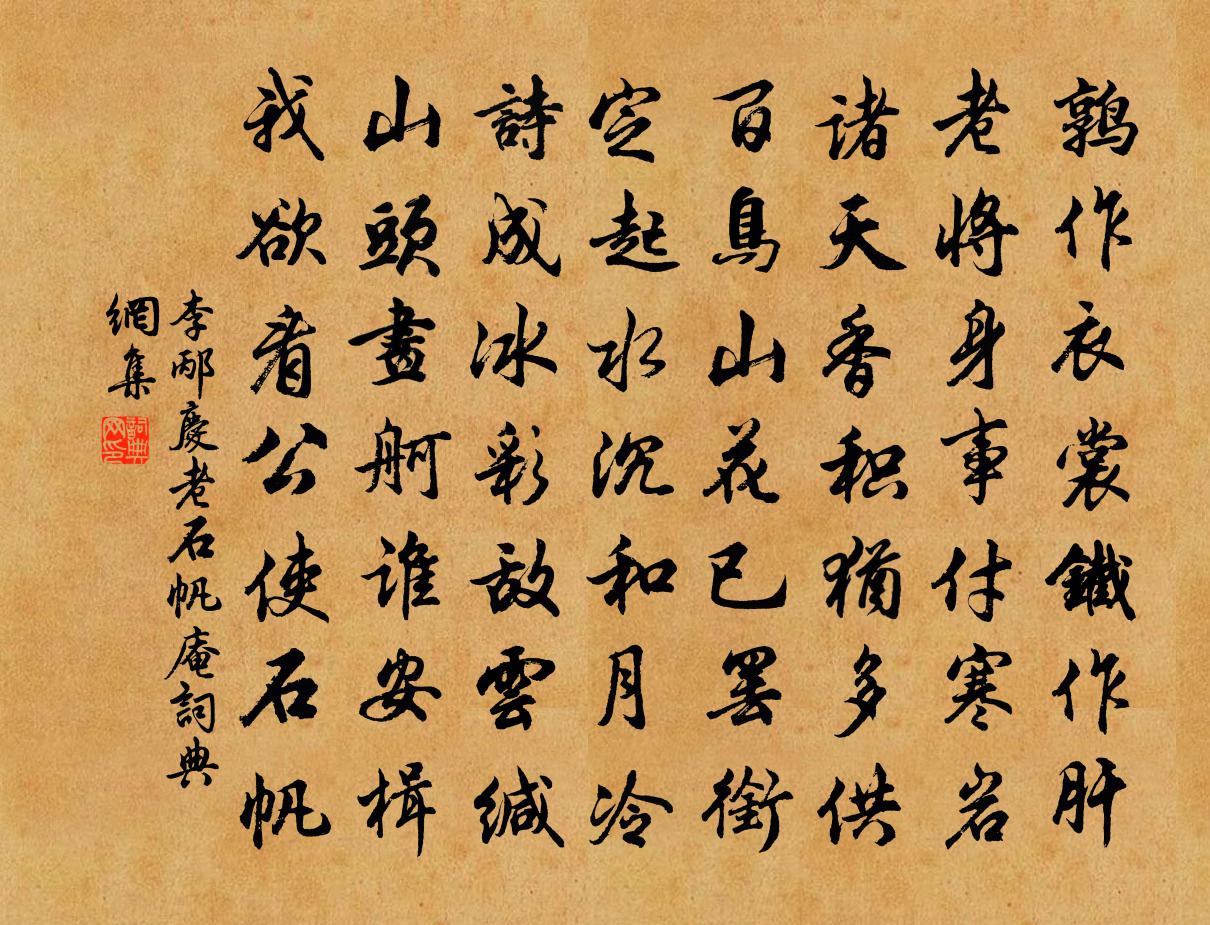 鶉作衣裳鐵作肝
老將身事付寒岩
诸天香积猶多供
百鳥山花已罢銜
定起水沉和月冷
詩成冰彩敌雲缄
山頭畫舸谁安楫
我欲看公使石帆
李邴慶老石帆庵詞典
網集
詞典網印